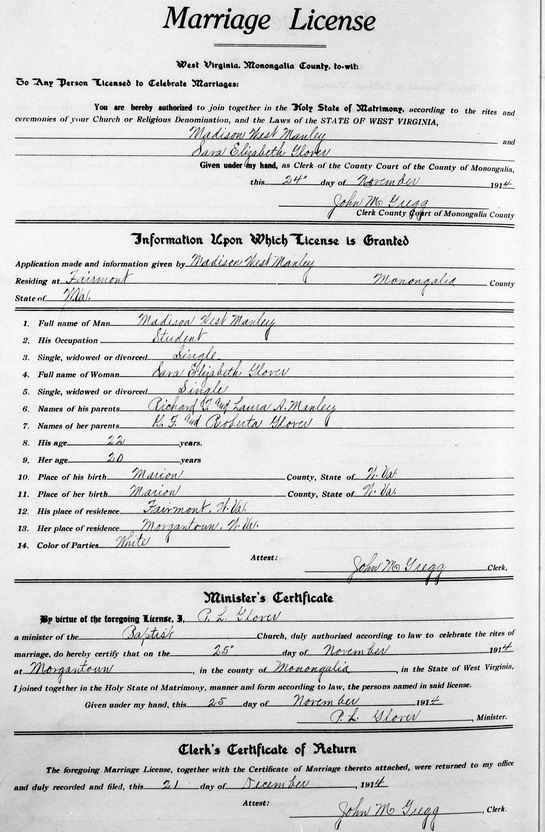 Marriage License
West Virginia, Monongalia County, to-wit:
To Any Person Licensed to Celebrate Marriages:
You are hereby authorized to join together in the Holy State of Matrimony, according to the rites and
ceremonies of your Church or Religious Denomination, and the Laws of the STATE OF WEST VIRGINIA,
Madison West Manley
and
Sara Elizabeth Glover
Given under my hand, as Clerk of the County Court of the County of Monongalia,
this 24" day of November 1914
John M Gregg
Clerk County Court of Monongalia County
Information Upon Which License is Granted
Application made and information given by Madison West Manley
Residing at Fairmont Monongalia County
State of Va.
1. Full name of Man Madison West Manley
2. His Occupation Student
3. Single, widowed or divorced Single
4. Full name of Woman Sara Elizabeth Glover
5. Single, widowed or divorced Single
6. Names of his parents Richard and Laura A. Manley
7. Names of her parents F. and Roberta Glover
8. His age 22 years.
9. Her age 20 years
10. Place of his birth Marion County, State of W. Va.
11. Place of her birth Marion County, State of W. Va.
12. His place of residence Fairmont, W. Va.
13. Her place of residence Morgantown, W. Va.
14. Color of Parties White
Attest:
John M Gregg Clerk.
Minister's Certificate
By virtue of the foregoing License, I, P. L. Glover
a minister of the Baptist Church, duly authorized according to law to celebrate the rites of
marriage, do hereby certify that on the 25" day of November 1914
at Morgantown, in the county of Monongalia, in the State of West Virginia,
I joined together in the Holy State of Matrimony, manner and form according to law, the persons named in said license.
Given under my hand, this 25 day of November 1914
P. L. Glover, Minister.
Clerk's Certificate of Return
The foregoing Marriage License, together with the Certificate of Marriage thereto attached, were returned to my office
and duly recorded and filed, this 21 day of December, 1914
Attest:
John M Gregg, Clerk.